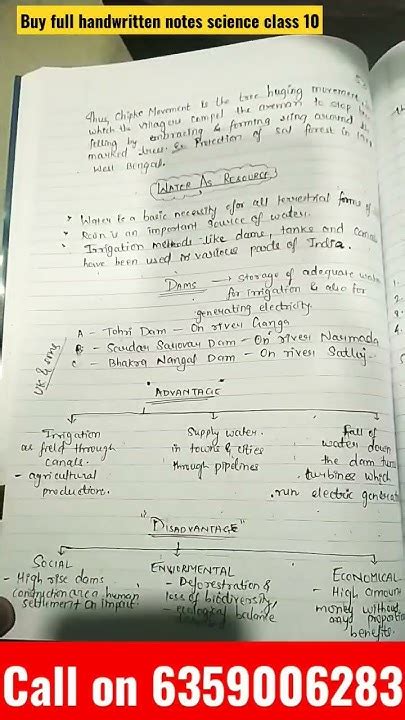 Buy full handwritten notes science class 10
Thus, Chipko Movement is the tree huging movement
which the villagers compel the axeman to stop
felling by embracing & forming ring around the
marked trees. Ex Protection of sal forest in
West Bengal.
WATER AS RESOURCE
* Water is a basic necessity for all terrestrial forms of
* Rain is an important source of water.
* Irrigation methods like dams, tanks and canals
have been used in various parts of India.
DAMS → Storage of adequate water
for irrigation & also for
generating electricity
A - Tehri Dam - On river Ganga
B - Sardar Sarovar Dam - On river Narmada
C - Bhakra Nangal Dam - On river Satluj
"ADVANTAGE"
Irrigation
field through
canals.
- agricultural
production.
Supply water
in towns & cities
through pipelines
Fall of
water down
the dam turns
turbines which
run electric generator
"DISADVANTAGE"
SOCIAL
- High rise dams
construction area human
settlement on impact.
ENVIORMENTAL
- Deforestration &
loss of biodiversity,
- ecological balance
ECONOMICAL
- High amount
money without
any proportion
benefits.
Call on 6359006283